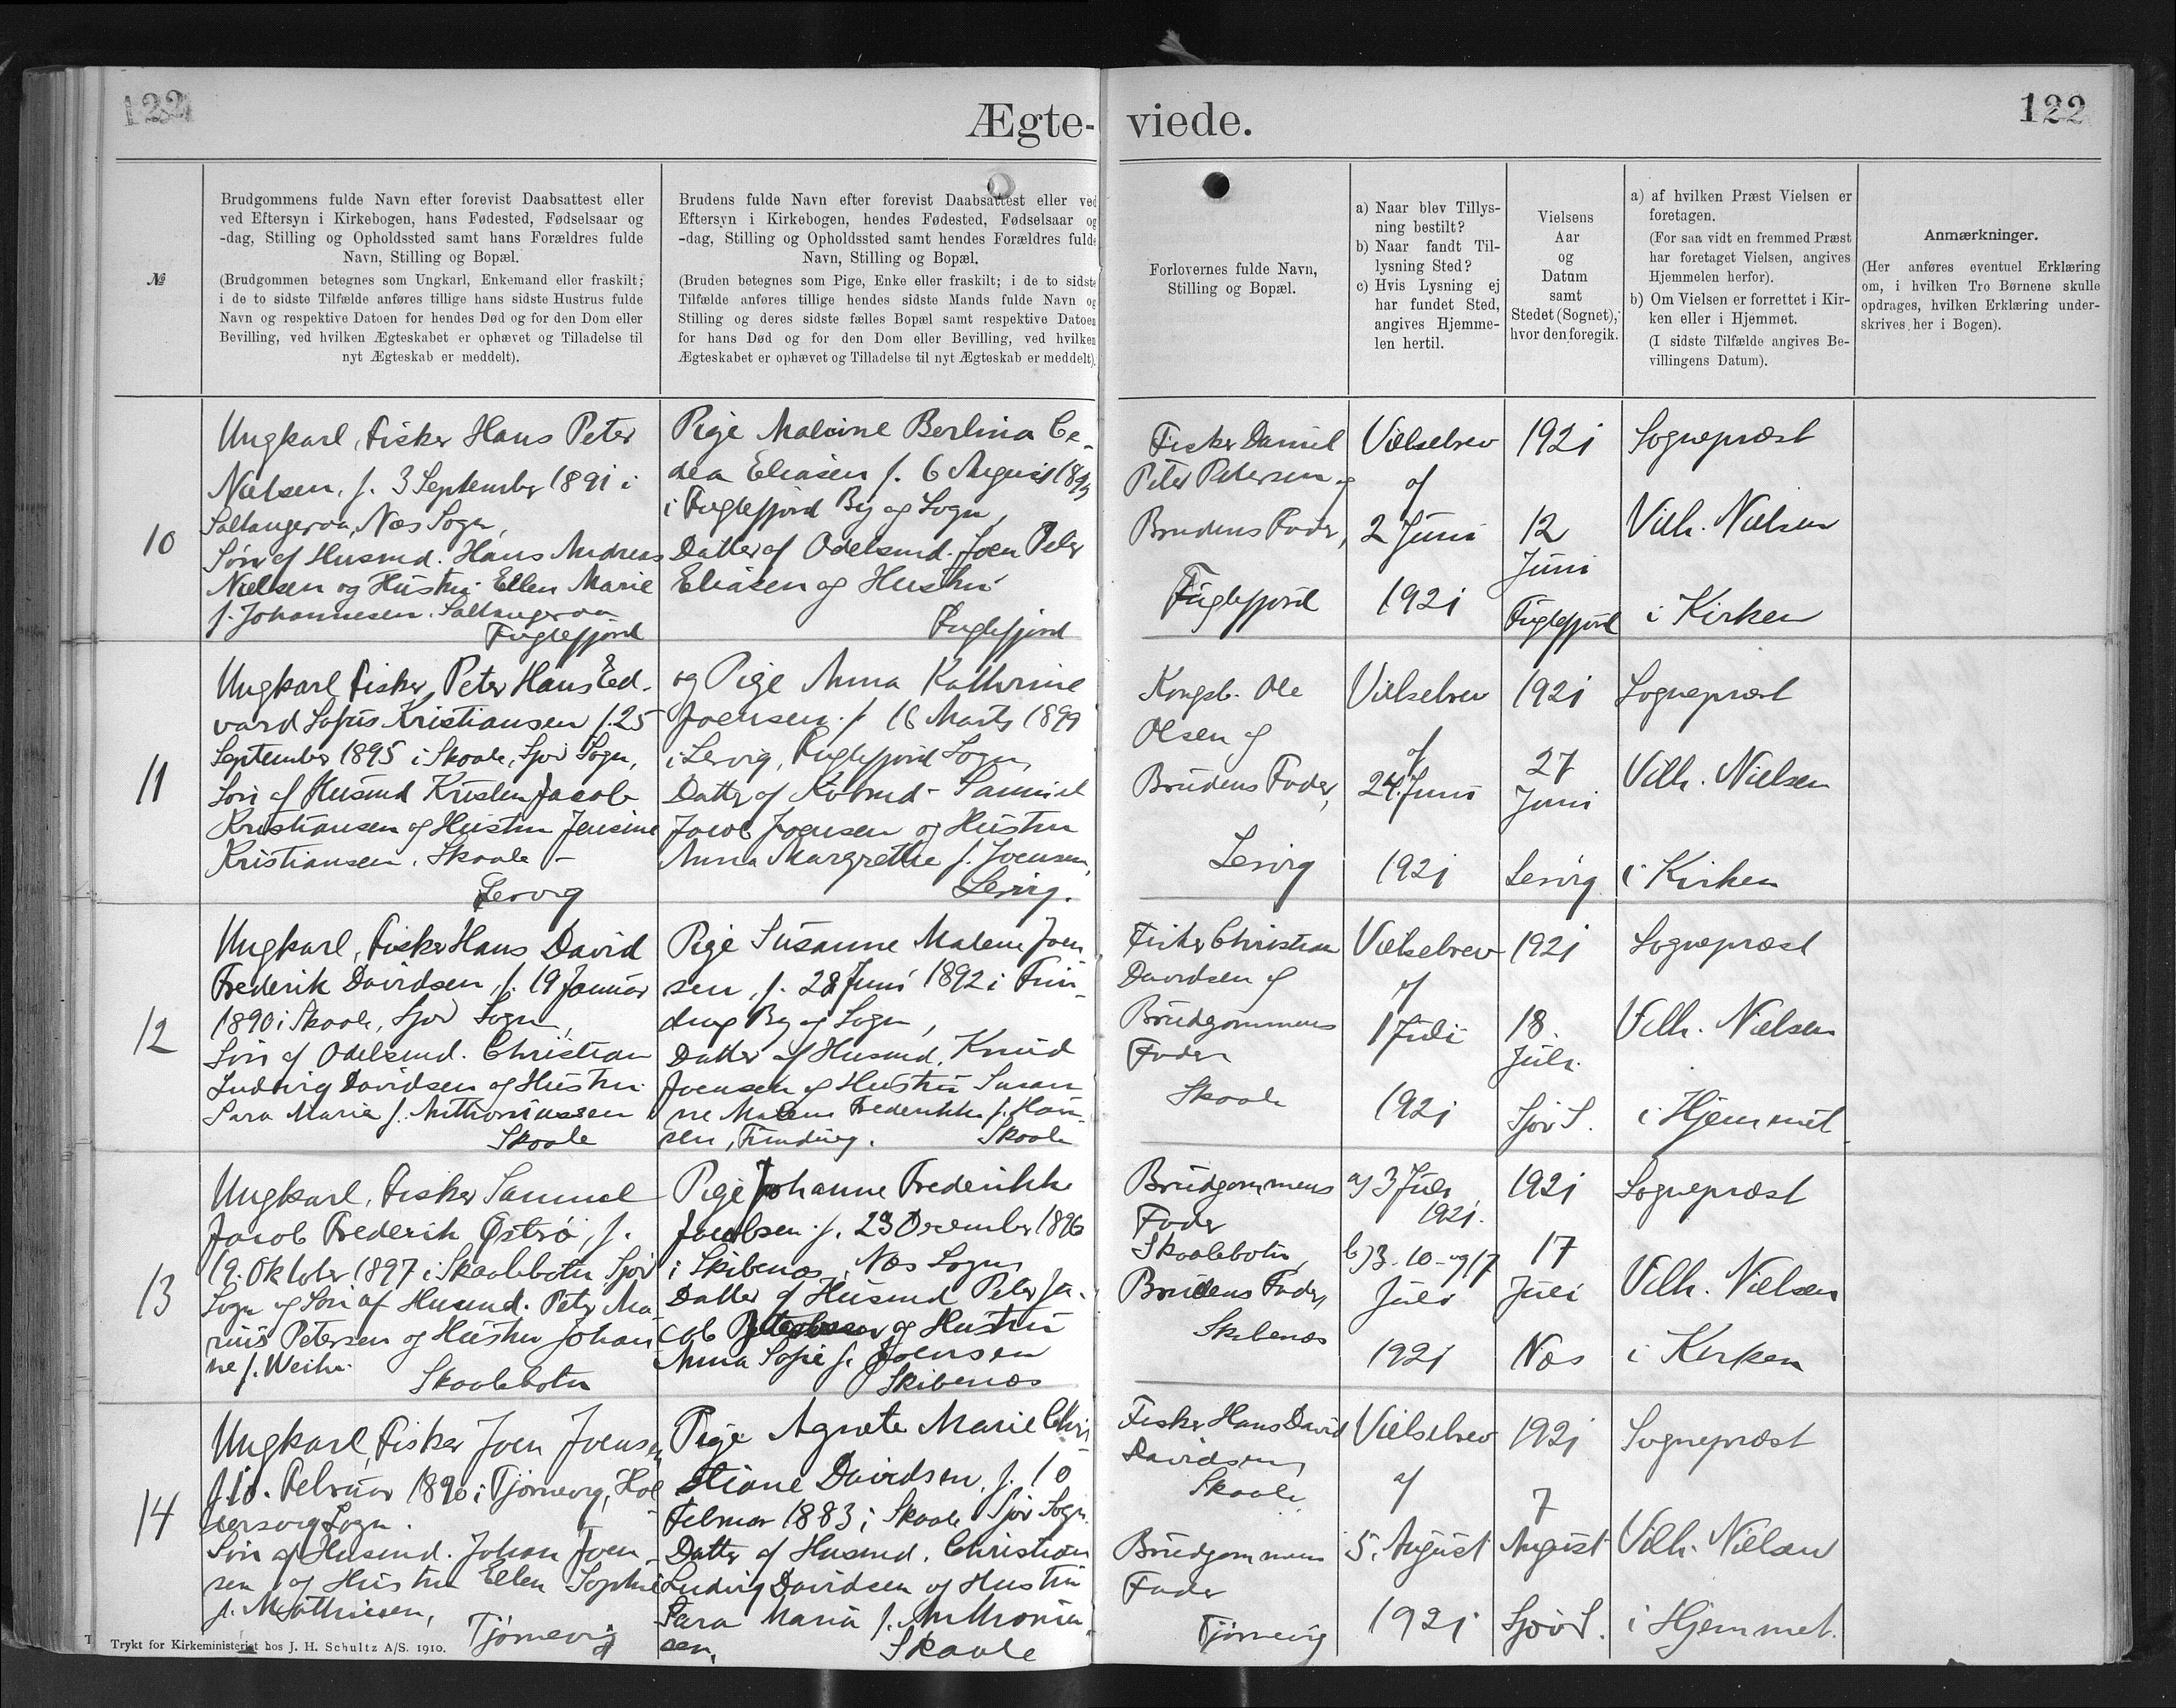 122
Ægte-viede.
122
№
Brudgommens fulde Navn efter forevist Daabsattest eller
ved Eftersyn i Kirkebogen, hans Fødested, Fødselsaar og
-dag, Stilling og Opholdssted samt hans Forældres fulde
Navn, Stilling og Bopæl.
(Brudgommen betegnes som Ungkarl, Enkemand eller fraskilt;
i de to sidste Tilfælde anføres tillige hans sidste Hustrus fulde
Navn og respektive Datoen for hendes Død og for den Dom eller
Bevilling, ved hvilken Ægteskabet er ophævet og Tilladelse til
nyt Ægteskab er meddelt).
Brudens fulde Navn efter forevist Daabsattest eller ved
Eftersyn i Kirkebogen, hendes Fødested, Fødselsaar og
-dag, Stilling og Opholdssted samt hendes Forældres fulde
Navn, Stilling og Bopæl.
(Bruden betegnes som Pige, Enke eller fraskilt; i de to sidste
Tilfælde anføres tillige hendes sidste Mands fulde Navn og
Stilling og deres sidste fælles Bopæl samt respektive Datoen
for hans Død og for den Dom eller Bevilling, ved hvilken
Ægteskabet er ophævet og Tilladelse til nyt Ægteskab er meddelt).
Forlovernes fulde Navn,
Stilling og Bopæl.
a) Naar blev Tillys-
ning bestilt?
b) Naar fandt Til-
lysning Sted?
c) Hvis Lysning ej
har fundet Sted,
angives Hjemme-
len hertil.
Vielsens
Aar
og
Datum
samt
Stedet (Sognet),
hvor den foregik.
a) af hvilken Præst Vielsen er
foretagen.
(For saa vidt en fremmed Præst
har foretaget Vielsen, angives
Hjemmelen herfor).
b) Om Vielsen er forrettet i Kir-
ken eller i Hjemmet.
(I sidste Tilfælde angives Be-
villingens Datum).
Anmærkninger.
(Her anføres eventuel Erklæring
om, i hvilken Tro Børnene skulle
opdrages, hvilken Erklæring under-
skrives her i Bogen).
10
Ungkarl, Fisker Hans Peter
Nielsen, f. 3 September 1891 i
Saltangeraa, Næs Sogn,
Søn af Husmd. Hans Andreas
Nielsen og Hustru Ellen Marie
f. Johannesen. Saltangeraa
Fuglefjord
Pige Malvine Berlina Ce-
dea Eliasen f. 6 August
i Fuglefjord By og Sogn,
Datter af Odelsmd. Joen Peter
Eliasen og Hustru
Fuglefjord
Fisker Daniel
Peter Petersen og
Brudens Fader,
Fuglefjord
Vielsebrev
af
2 Juni
1921
1921
12
Juni
Fuglefjord
Sognepræst
Vilh. Nielsen
i Kirken
11
Ungkarl, Fisker, Peter Hans Ed-
vard Sofus Kristiansen f. 25
September 1895 i Skaale, Sjov Sogn,
Søn af Husmd Kristen Jacob
Kristiansen og Hustru Jensine
Kristiansen. Skaale -
Lervig
og Pige Anna Kathrine
Joensen f. 16 Marts 1899
i Lervig, Fuglefjord Sogn,
Datter af Samuel
Jacob Joensen og Hustru
Anna Margrethe f. Joensen,
Lervig.
Kongsb. Ole
Olsen og
Brudens Fader,
Lervig
Vielsebrev
af
24. Juni
1921
1921
27
Juni
Lervig
Sognepræst
Vilh. Nielsen
i Kirken
12
Ungkarl, Fisker Hans David
Frederik Davidsen, f. 19 Januar
1890 i Skaale, Sjov Sogn,
Søn af Odelsmd. Christian
Ludvig Davidsen og Hustru
Sara Maria f. Anthoniussen
Skaale
Pige Susanne Malene Joen
sen, f. 28 Juni 1892 i Fun-
ding By og Sogn,
Datter af Husmd. Knud
Joensen og Hustru Susan
ne Malene Frederikke f. Han
sen, Funding. Skaale
Fisker Christian
Davidsen og
Brudgommens
Fader
Skaale
Vielsebrev
af
1 Juli
1921
1921
18.
Juli.
Sjov S.
Sognepræst
Vilh. Nielsen
i Hjemmet
13
Ungkarl, Fisker Samuel
Jacob Frederik Østrø, f.
19. Oktober 1897 i Skaalebotn, Sjov
Sogn og Søn af Husmd. Peter Ma
rius Petersen og Hustru Johan
ne f. Weihe.
Skaalebotn
Pige Johanne Frederikke
Jacobsen f. 23 December 1896
i Skibenæs, Næs Sogn
Datter af Husmd Peter Ja-
cob og Hustru
Anna Sofie f. Joensen
Skibenæs
Brudgommens
Fader
Skaalebotn,
Brudens Fader,
Skibenæs
a) 3 Juli
1921.
b) 3. 10 - og 17
Juli
1921
1921
17
Juli
Næs
Sognepræst
Vilh. Nielsen
i Kirken
14
Ungkarl, Fisker Joen Joensen
f. 10. Februar 1890 i Tjørnevig, Hal
dersvig Sogn.
Søn af Husmd. Johan Joen
sen og Hustru Ellen Sophie
f. Mathiesen,
Tjørnevig
Pige Agnete Marie Chri
stiane Davidsen, f. 10
Februar 1883 i Skaale Sjov Sogn.
Datter af Husmd. Christian
Ludvig Davidsen og Hustru
Sara Maria f. Anthonius
sen,
Skaale
Fisker Hans David
Davidsen,
Skaale.
Brudgommens
Fader
Tjørnevig
Vielsebrev
af
5. August
1921
1921
7
August
Sjov S.
Sognepræst
Vilh. Nielsen
i Hjemmet.
Trykt for Kirkeministeriet hos J. H. Schultz A/S. 1910.